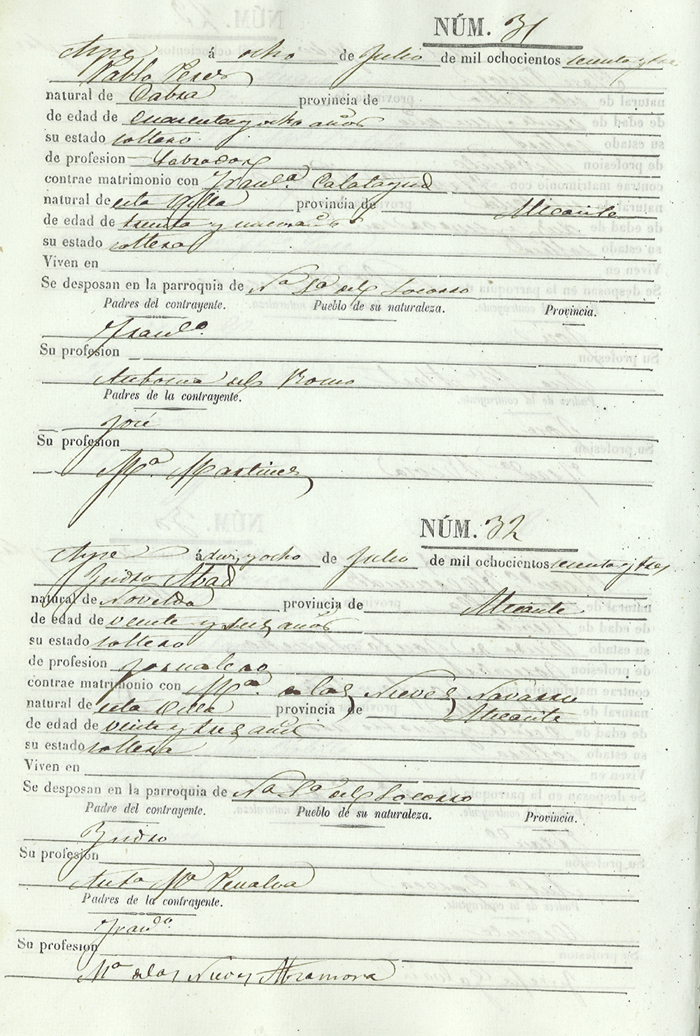 NÚM. 31
Aspe á ocho de Julio de mil ochocientos sesenta y tres
Pablo Peres
natural de Cabra provincia de
de edad de cuarenta y ocho años
su estado soltero
de profesion Labrador
contrae matrimonio con Franca. Calatayud
natural de esta Villa provincia de Alicante
de edad de treinta y nueve años
su estado soltera
Viven en
Se desposan en la parroquia de Na. Sa. del Socorro
Padres del contrayente. Pueblo de su naturaleza. Provincia.
Franco.
Su profesion
del Romo
Padres de la contrayente.
José
Su profesion
Ma. Martines
NÚM. 32
Aspe á diez y ocho de Julio de mil ochocientos sesenta y tres
Abad
natural de Novelda provincia de Alicante
de edad de veinte y seis años
su estado soltero
de profesion jornalero
contrae matrimonio con Ma. de las Nieves Navarro
natural de esta Villa provincia de Alicante
de edad de veinte y tres años
su estado soltera
Viven en
Se desposan en la parroquia de Na. Sa. del Socorro
Padre del contrayente. Pueblo de su naturaleza. Provincia.
Su profesion
Anta. Ma. Penalva
Padres de la contrayente.
Franco.
Su profesion
Ma. de las Nieves